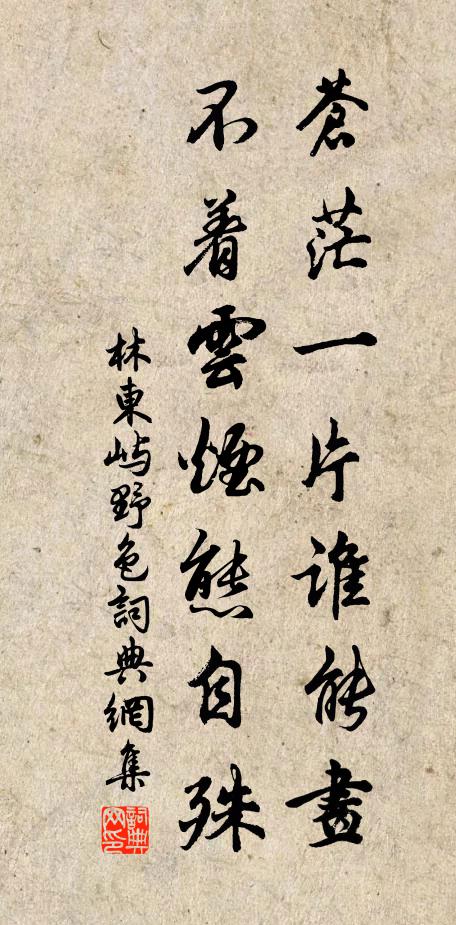 蒼茫一片誰能畫
不着雲煙態自殊
林東嶼野色詞典網集
詞典网印